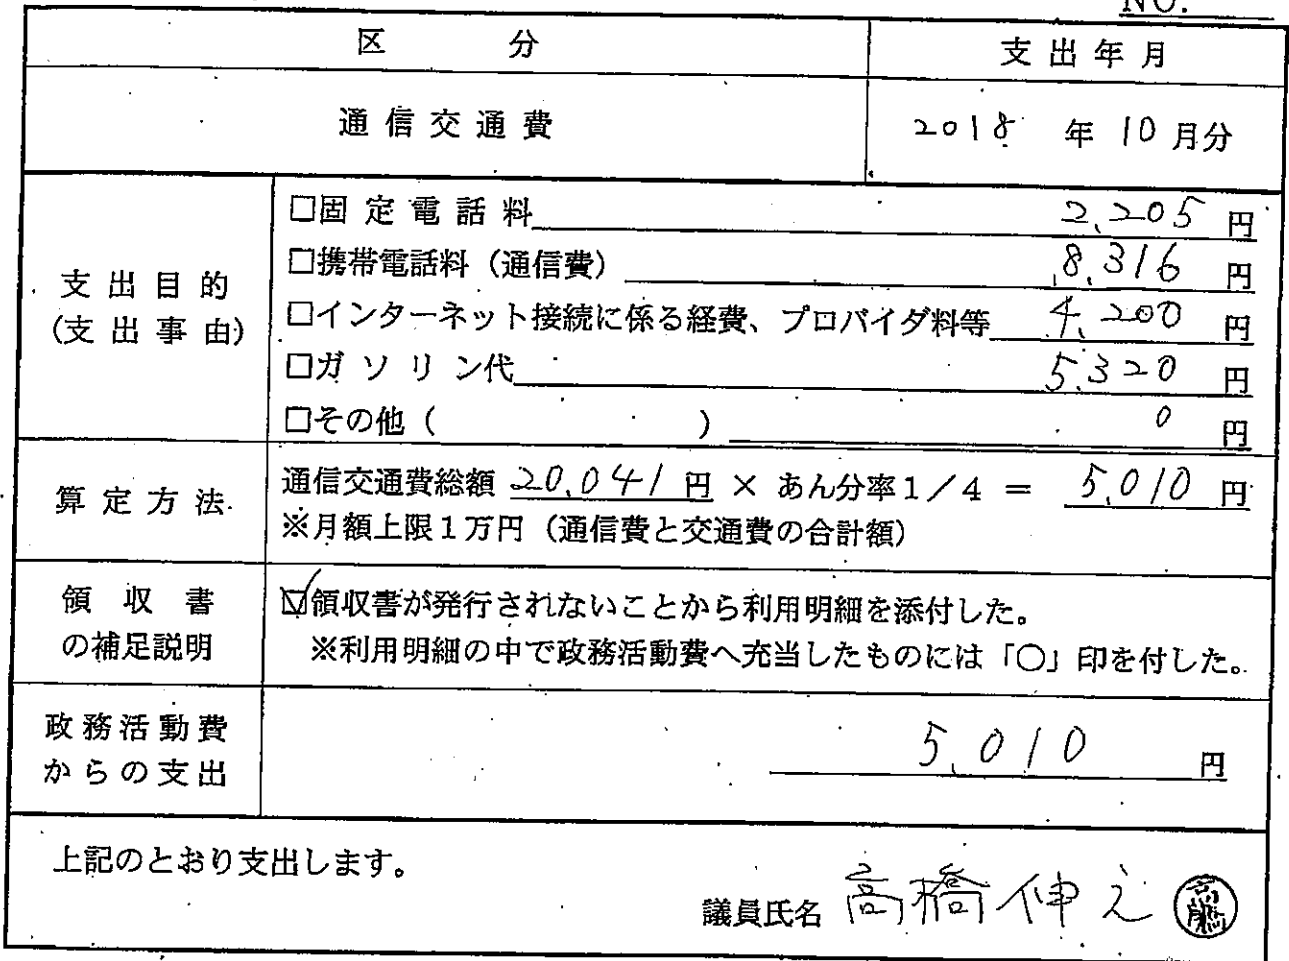 NO.
区 分
支出年月
通信交通費
2018 年 10 月分
支出目的
(支出事由)
□固定電話料 2,205 円
□携帯電話料（通信費） 8,316 円
□インターネット接続に係る経費、プロバイダ料等 4,200 円
□ガソリン代 5,320 円
□その他（ ） 0 円
算定方法
通信交通費総額 20,041 円 × あん分率1／4 ＝ 5,010 円
※月額上限1万円（通信費と交通費の合計額）
領収書
の補足説明
☑領収書が発行されないことから利用明細を添付した。
※利用明細の中で政務活動費へ充当したものには「〇」印を付した。
政務活動費
からの支出
5,010 円
上記のとおり支出します。
議員氏名 高橋伸之 高橋